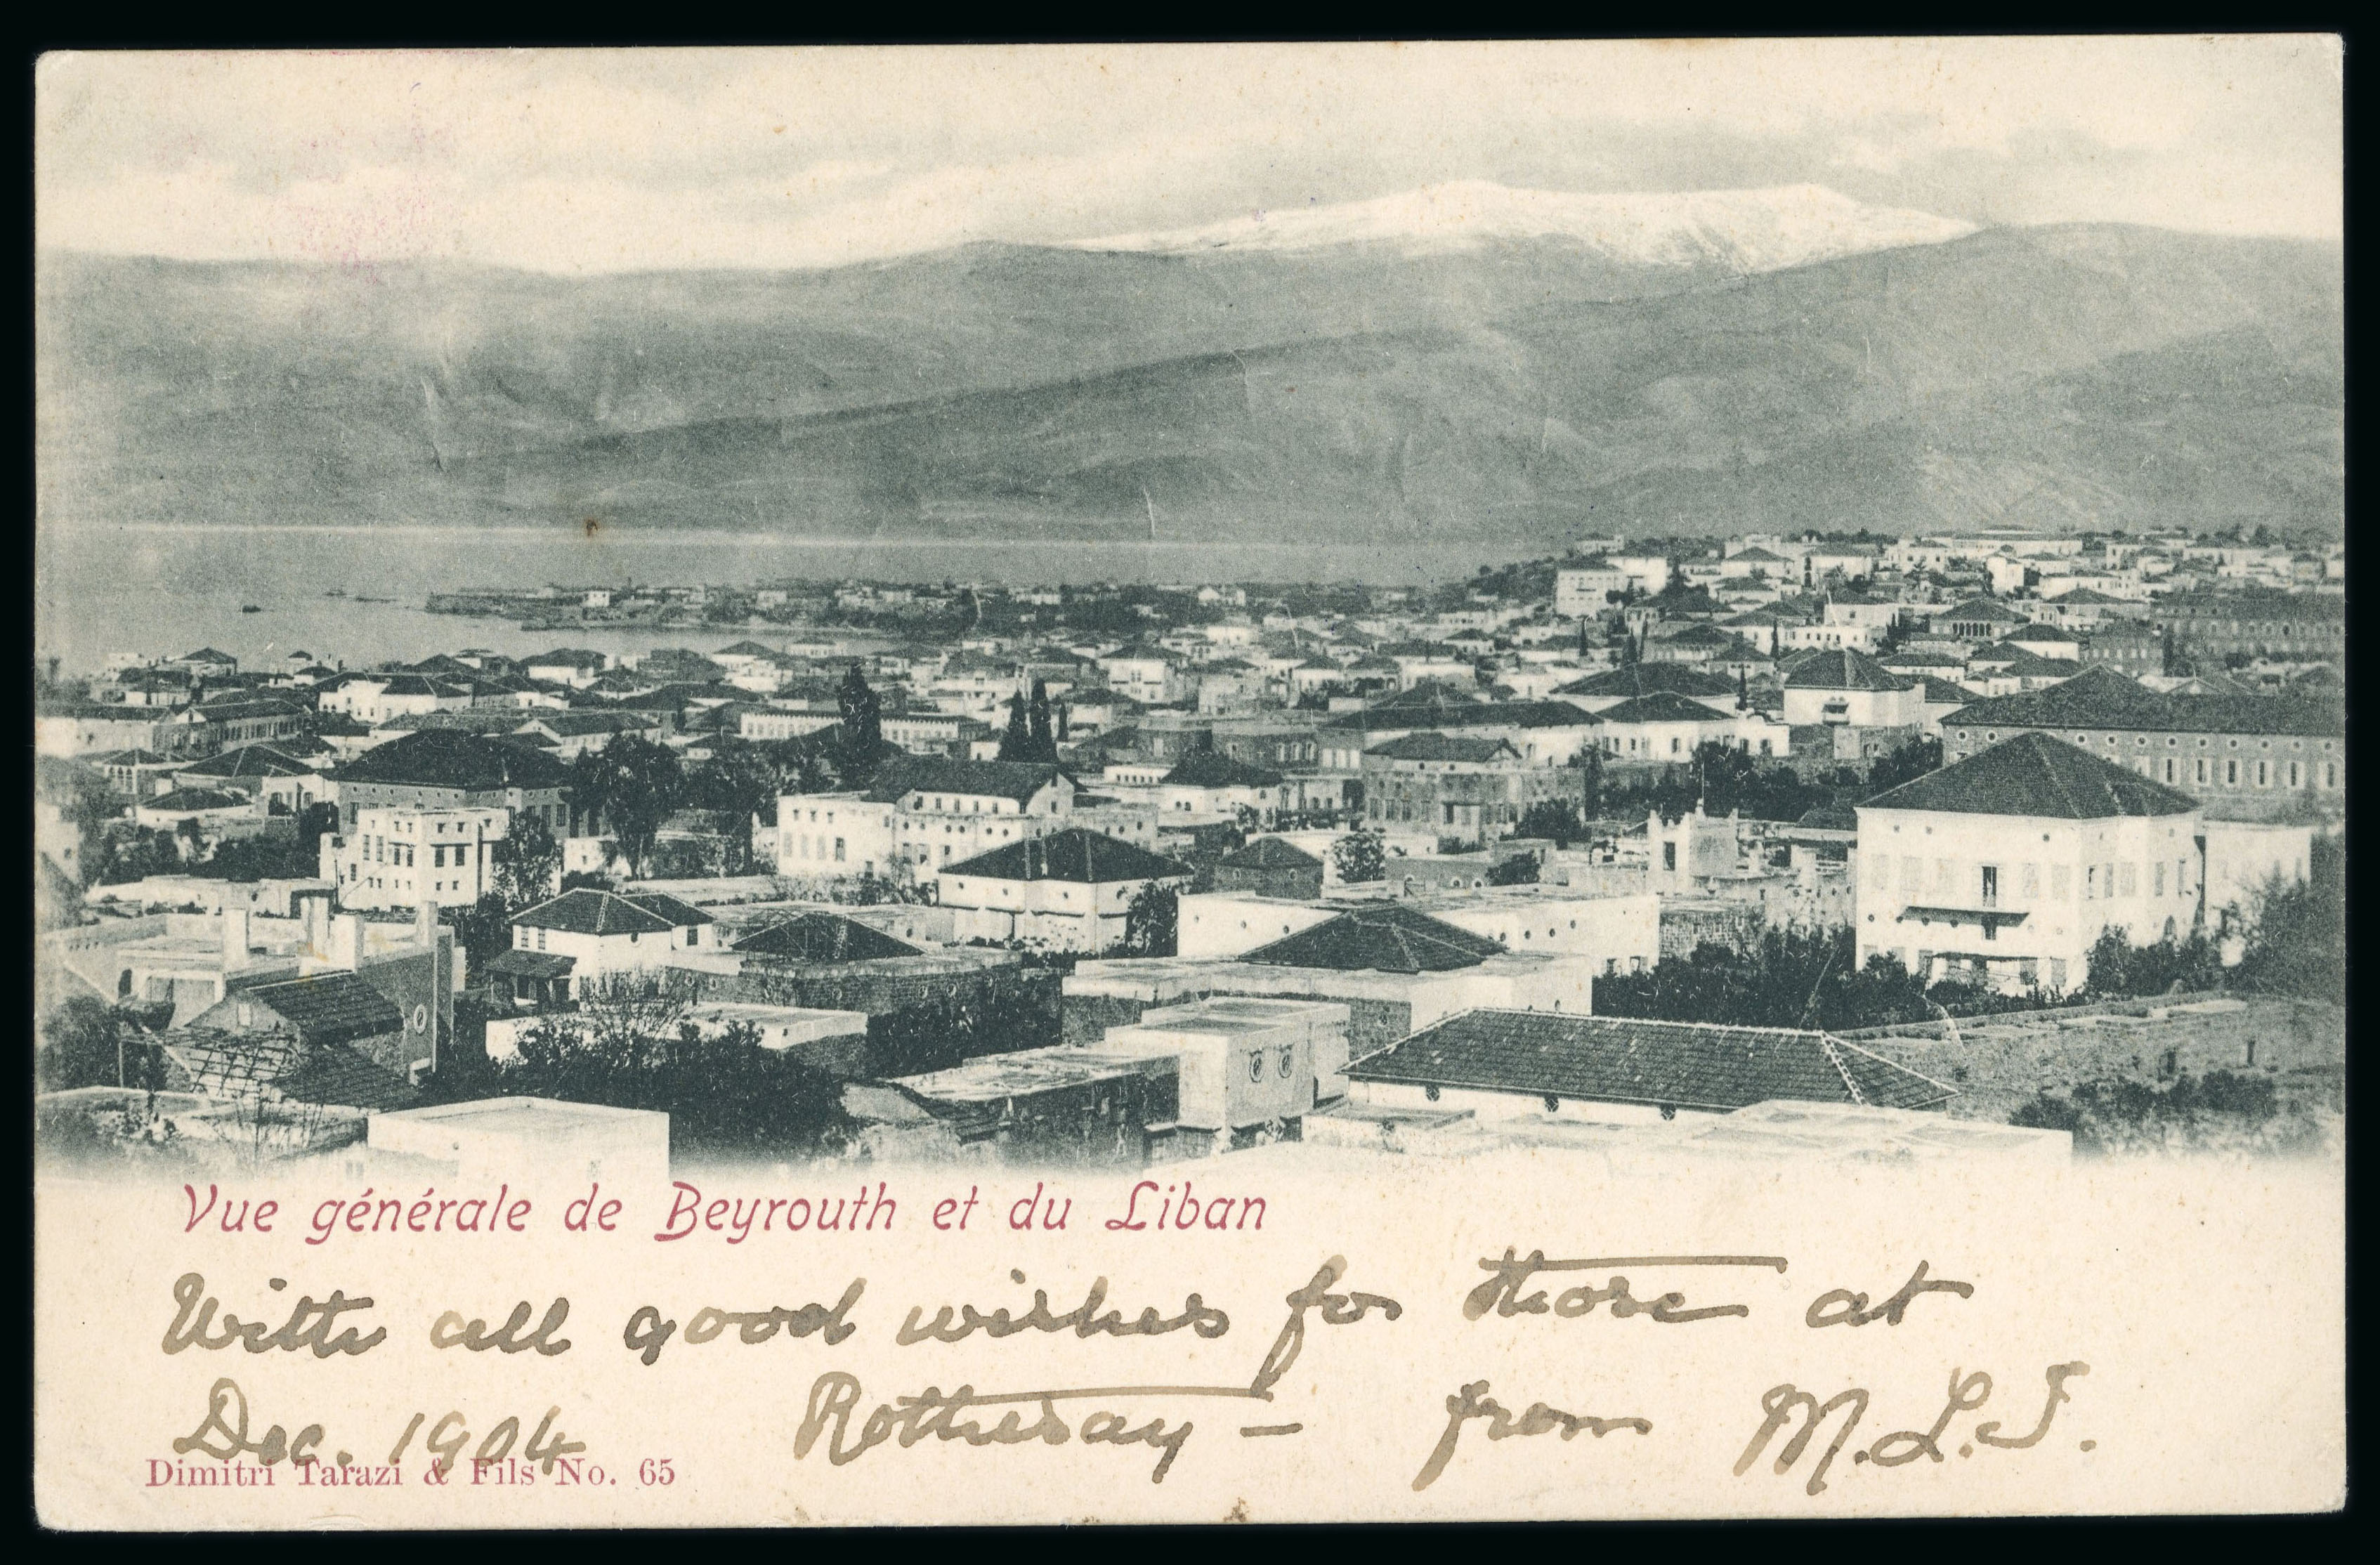 Vue générale de Beyrouth et du Liban
With all good wishes for those at
Dec. 1904 Rothesay – from M.L.J.
Dimitri Tarazi & Fils No. 65